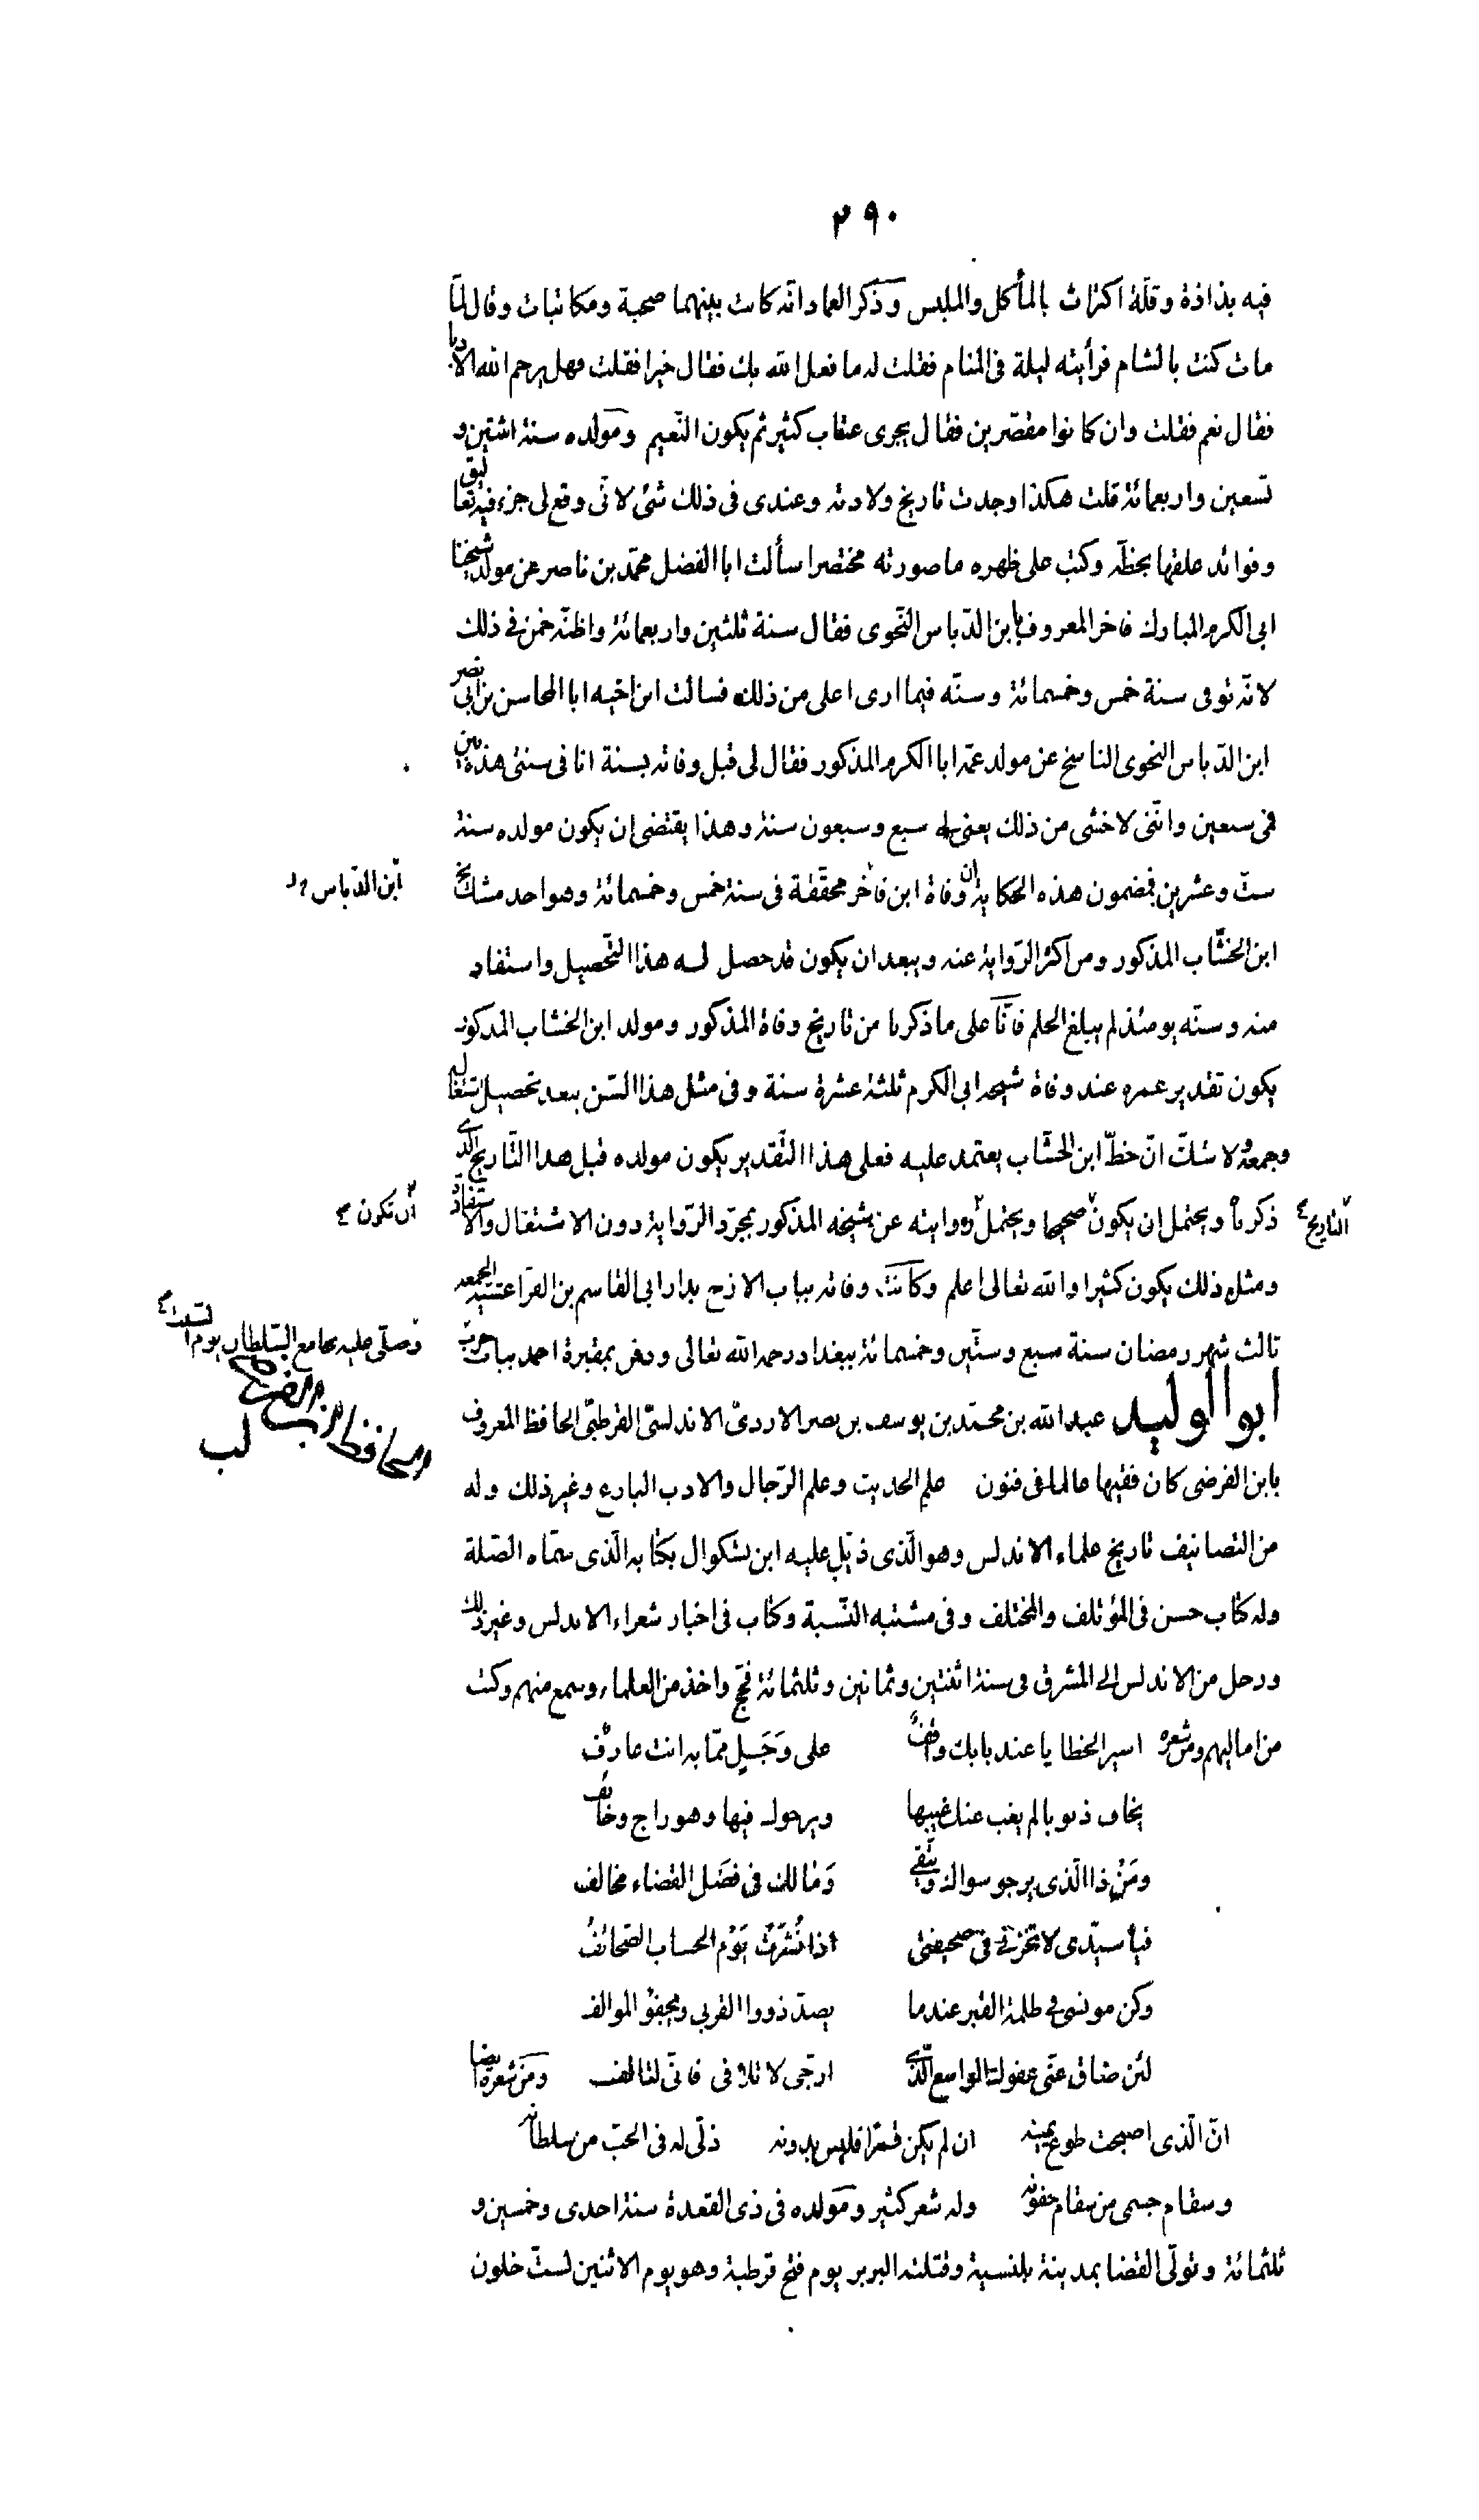 ٢٩٠
فيه بذاذة وقلة اكتراث بالمأكل والملبس وذكر العماد انّه كانت بينهما صحبة ومكاتبات وقال لمّا
مات كنت بالشام فرأيته ليلة فى المنام فقلت له ما فعل الله بك فقال خيرا فقلت فهل يرحم الله الادبا
فقال نعم فقلت وان كانوا مقصّرين فقال يجرى عتاب كثير ثم يكون النّعيم ومولده سنة اثنتين و
تسعين واربعمائة قلت هكذا وجدت تاريخ ولادته وعندى فى ذلك شئ لانّى وقع لى جزء فيه تعاليق
وفوائد علقها بخطّه وكتب على ظهره ما صورته مختصرا سألت ابا الفضل محمّد بن ناصر عن مولد شيخنا
ابى الكرم المبارك فاخر المعروف بابن الدّباس النّحوى فقال سنة ثلثين واربعمائة واظنّه خمن فى ذلك
لانّه توفى سنة خمس وخمسمائة وسنّه فيما ارى اعلى من ذلك فسالت ابن اخيه ابا المحاسن بن ابى نصر
ابن الدّباس النحوى الناسخ عن مولد عمّه ابا الكرم المذكور فقال لى قبل وفاته بسنة انا فى سنتى هذه بين
فى سبعين وانّنى لاخشى من ذلك يعنى سبع وسبعون سنة وهذا يقتضى ان يكون مولده سنة
ستّ وعشرين فمضمون هذه الحكاية ان وفاة ابن فاخر محقّقة فى سنة خمس وخمسمائة وهو احد مشايخ
ابن الدّباس
ابن الخشّاب المذكور ومن اكثر الرّواية عنه ويبعد ان يكون قد حصل له هذا التّحصيل واستفاد
منه وسنّه يومئذ لم يبلغ الحلم فانّا على ما ذكرنا من تاريخ وفاة المذكور ومولد ابن الخشاب المذكور
يكون تقدير عمره عند وفاة شيخه ابى الكرم ثلثة عشرة سنة وفى مثل هذا السّن يبعد تحصيل
وجمعه ولا شكّ انّ خطّ ابن الخشّاب يعتمد عليه فعلى هذا التّقدير يكون مولده قبل هذا التّاريخ الّذى
ذكرناه ويحتمل ان يكون صحيحا ويحتمل روايته عن شيخه المذكور بمجرّد الرّواية دون الاشتغال والاستفادة
التاريخ
ان تكون
ومثل ذلك يكون كثيرا والله تعالى اعلم وكانت وفاته بباب الازج بدار ابى القاسم بن الفرا عشيّة الجمعه
ثالث شهر رمضان سنة سبع وستّين وخمسمائة ببغداد رحمه الله تعالى ودفن بمقبرة احمد بباب حرب
وصلّى عليه بجامع السّلطان يوم السّبت
ابو الوليد عبد الله بن محمّد بن يوسف بن نصر الازدىّ الاندلسىّ القرطبىّ الحافظ المعروف
الحافظ ابن الفرضى
بابن الفرضى كان فقيها عالما فى فنون علم الحديث وعلم الرّجال والادب البارع وغير ذلك وله
من التصانيف تاريخ علماء الاندلس وهو الّذى ذيّل عليه ابن بشكوال بكتابه الّذى سمّاه الصّلة
وله كتاب حسن فى المؤتلف والمختلف وفى مشتبه النّسبة وكتاب فى اخبار شعراء الاندلس وغير ذلك
ورحل من الاندلس الى المشرق فى سنة اثنتين وثمانين وثلثمائة فحجّ واخذ من العلماء وسمع منهم وكتب
من اماليهم ومن شعره اسير الخطايا عند بابك واقفٌ على وَجَلٍ ممّا به انت عارف
يخاف ذنوبا لم يغب عنك غيبها ويرجوك فيها وهو راج وخائف
ومَنْ ذا الّذى يرجو سواك ويتّقى ومالك فى فصل القضاء مخالف
فيا سيّدى لا تخزنى فى صحيفتى اذا نُشِرَتْ يَوْم الحساب الصّحائفُ
وكن مونسى فى ظلمة القبر عندما يصدّ ذووا القربى ويجفو الموالف
لئن ضاق عنّى عفوك الواسع الّذى ارجّى لاتلافى فانّى لتالف ومن شعره ايضا
انّ الّذى اصبحت طوع يمينه ان لم يكن قمرا فليس بدونه ذلّى له فى الحبّ من سلطانه
وسقام جسمى من سقام جفونه وله شعر كثير ومولده فى ذى القعدة سنة احدى وخمسين و
ثلثمائة وتولّى القضا بمدينة بلنسية وقتلته البربر يوم فتح قرطبة وهو يوم الاثنين لستّ خلون